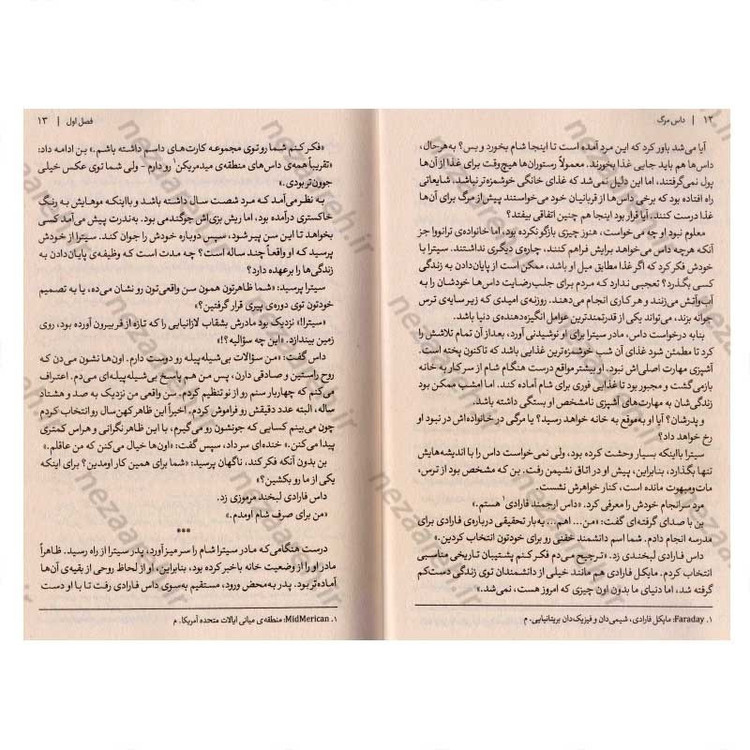 ۱۲ | داس مرگ
آیا می‌شد باور کرد که این مرد آمده است تا اینجا شام بخورد و بس؟ به‌هرحال،
داس‌ها هم باید جایی غذا بخورند. معمولاً رستوران‌ها هیچ‌وقت برای غذا از آن‌ها
پول نمی‌گرفتند، اما این دلیل نمی‌شد که غذای خانگی خوشمزه‌تر نباشد. شایعاتی
راه افتاده بود که برخی داس‌ها از قربانیان خود می‌خواستند پیش از مرگ برای آن‌ها
غذا درست کنند. آیا قرار بود اینجا هم چنین اتفاقی بیفتد؟
معلوم نبود او چه می‌خواست، هنوز چیزی بازگو نکرده بود، اما خانواده‌ی ترانووا جز
آنکه هرچه داس می‌خواهد برایش فراهم کنند، چاره‌ی دیگری نداشتند. سیترا با
خودش فکر کرد که اگر غذا مطابق میل او باشد، ممکن است از پایان‌دادن به زندگی
کسی بگذرد؟ تعجبی ندارد که مردم برای جلب رضایت داس‌ها خودشان را به
آب‌وآتش می‌زنند و هر کاری انجام می‌دهند. روزنه‌ی امیدی که زیر سایه‌ی ترس
جوانه بزند، می‌تواند یکی از قدرتمندترین عوامل انگیزه‌دهنده‌ی دنیا باشد.
بنا به درخواست داس، مادر سیترا برای او نوشیدنی آورد، بعد از آن تمام تلاشش را
کرد تا مطمئن شود غذای آن شب خوشمزه‌ترین غذایی باشد که تاکنون پخته است.
آشپزی مهارت اصلی‌اش نبود. او بیشتر مواقع درست هنگام شام از سر کار به خانه
بازمی‌گشت و مجبور بود تا غذایی فوری برای شام آماده کند. اما امشب ممکن بود
زندگی‌شان به مهارت‌های آشپزی نامشخص او بستگی داشته باشد.
و پدرشان؟ آیا او به‌موقع به خانه خواهد رسید؟ یا مرگی در خانواده‌اش در نبود او
رخ خواهد داد؟
سیترا بااینکه بسیار وحشت کرده بود، ولی نمی‌خواست داس را با اندیشه‌هایش
تنها بگذارد، بنابراین، پیش او در اتاق نشیمن رفت. بن که مشخص بود از ترس،
مات‌ومبهوت مانده است، کنار خواهرش نشست.
مرد سرانجام خودش را معرفی کرد. «داس ارجمند فارادی۱ هستم.»
بن با صدای گرفته‌ای گفت: «من... اهم... یه‌بار تحقیقی درباره‌ی فارادی برای
مدرسه انجام دادم. شما اسم دانشمند خفنی رو برای خودتون انتخاب کردین.»
داس فارادی لبخندی زد. «ترجیح می‌دم فکر کنم پشتیبان تاریخی مناسبی
انتخاب کردم. مایکل فارادی هم مانند خیلی از دانشمندان توی زندگی دست‌کم
گرفته شد، اما دنیای ما بدون اون چیزی که امروز هست، نمی‌شد.»
۱. Faraday: مایکل فارادی، شیمی‌دان و فیزیک‌دان بریتانیایی. م
فصل اول | ۱۳
«فکر کنم شما رو توی مجموعه کارت‌های داسم داشته باشم.» بن ادامه داد:
«تقریباً همه‌ی داس‌های منطقه‌ی میدمریکن۱ رو دارم - ولی شما توی عکس خیلی
جوون‌تر بودی.»
به نظر می‌آمد که مرد شصت سال داشته باشد و بااینکه موهایش به رنگ
خاکستری درآمده بود، اما ریش بزی‌اش جوگندمی بود. به‌ندرت پیش می‌آمد کسی
بخواهد تا این سن پیر شود، سپس دوباره خودش را جوان کند. سیترا از خودش
پرسید که او واقعاً چند ساله است؟ چه مدت است که وظیفه‌ی پایان‌دادن به
زندگی‌ها را برعهده دارد؟
سیترا پرسید: «شما ظاهرتون همون سن واقعی‌تون رو نشان می‌ده، یا به تصمیم
خودتون توی دوره‌ی پیری قرار گرفتین؟»
«سیترا!» نزدیک بود مادرش بشقاب لازانیایی را که تازه از فر بیرون آورده بود، روی
زمین بیندازد. «این چه سؤالیه؟!»
داس گفت: «من سؤالات بی‌شیله‌پیله رو دوست دارم. اون‌ها نشون می‌دن که
روح راستین و صادقی دارن، پس من هم پاسخ بی‌شیله‌پیله‌ای می‌دم. اعتراف
می‌کنم که چهاربار سنم رو از نو تنظیم کردم. سن واقعی من نزدیک به صد و هشتاد
ساله، البته عدد دقیقش رو فراموش کردم. اخیراً این ظاهر کهن‌سال رو انتخاب کردم
چون می‌بینم کسایی که جونشون رو می‌گیرم، با این ظاهر نگرانی و هراس کمتری
پیدا می‌کنن.» خنده‌ای سر داد، سپس گفت: «اون‌ها خیال می‌کنن که من عاقلم.»
بن بدون آنکه فکر کند، ناگهان پرسید: «شما برای همین کار اومدین؟ برای اینکه
یکی از ما رو بکشین؟»
داس فارادی لبخند مرموزی زد.
«من برای صرف شام اومدم.»
***
درست هنگامی‌که مادر سیترا شام را سر میز آورد، پدر سیترا از راه رسید. ظاهراً
مادر او را از وضعیت خانه باخبر کرده بود، بنابراین، او از لحاظ روحی از بقیه‌ی آن‌ها
آماده‌تر بود. پدر به‌محض ورود، مستقیم به‌سوی داس فارادی رفت تا با او دست
۱. MidMerican: منطقه‌ی میانی ایالات متحده آمریکا. م
nezaameh.ir